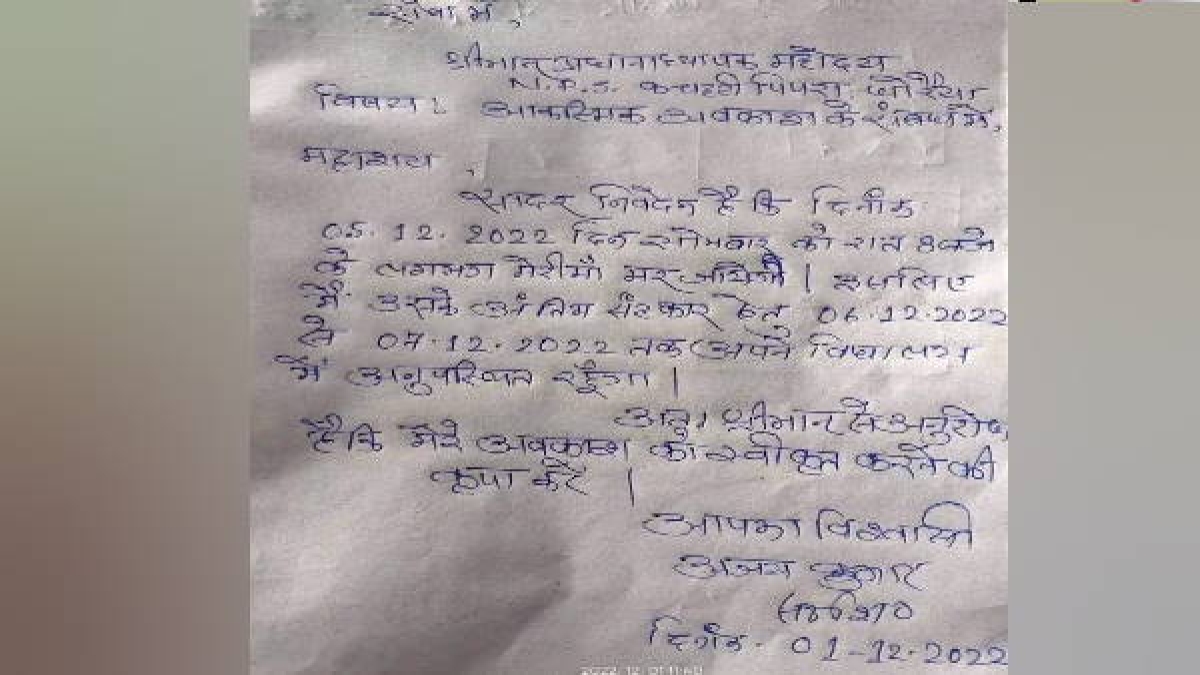 सेवा में,
श्रीमान् प्रधानाध्यापक महोदय
N.P.S. कचहरी पिपरा
विषय: आकस्मिक अवकाश के संबंध में,
महाशय,
सादर निवेदन है कि दिनांक
05.12.2022 दिन सोमवार को रात 8 बजे
के लगभग मेरी माँ मर जायेगी | इसलिए
मैं उसके अंतिम संस्कार हेतु 06.12.2022
से 07.12.2022 तक अपने विद्यालय
में अनुपस्थित रहूँगा |
अतः श्रीमान से अनुरोध
है कि मेरे अवकाश को स्वीकृत करने की
कृपा करें |
आपका विश्वासी
अजय कुमार
दिनांक- 01-12-2022